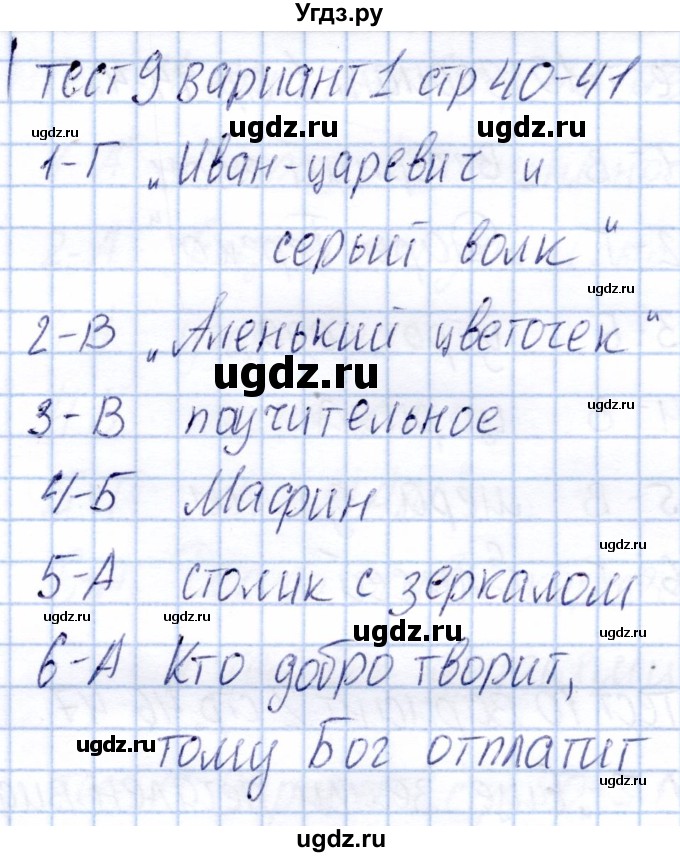 Угдз.ру
тест 9 вариант 1 стр 40-41
ugdz.ru ugdz.ru ugdz.ru
1-Г „Иван-царевич и
серый волк"
ugdz.ru
2-В „Аленький цветочек"
ugdz.ru
3-В поучительное
ugdz.ru
4-Б Мафин
ugdz.ru
5-А столик с зеркалом
ugdz.ru ugdz.ru ugdz.ru ugdz.ru
6-А Кто добро творит,
тому Бог отплатит
ugdz.ru ugdz.ru
ugdz.ru